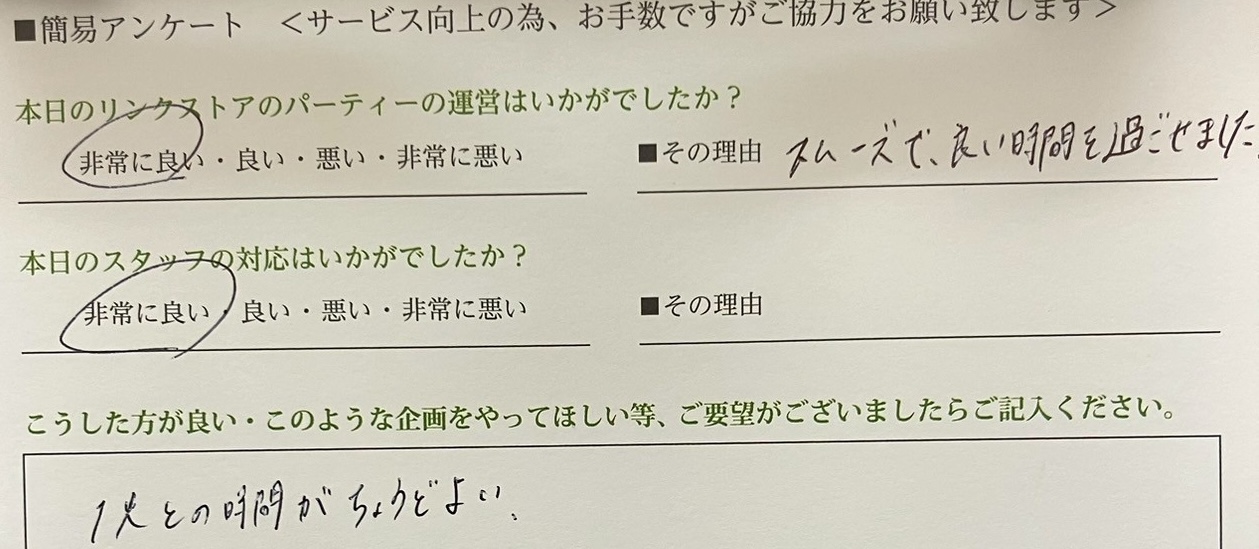 ■簡易アンケート ＜サービス向上の為、お手数ですがご協力をお願い致します＞
本日のリンクストアのパーティーの運営はいかがでしたか？
非常に良い・良い・悪い・非常に悪い ■その理由 スムーズで、良い時間を過ごせました
本日のスタッフの対応はいかがでしたか？
非常に良い・良い・悪い・非常に悪い ■その理由
こうした方が良い・このような企画をやってほしい等、ご要望がございましたらご記入ください。
1人との時間がちょうどよい。